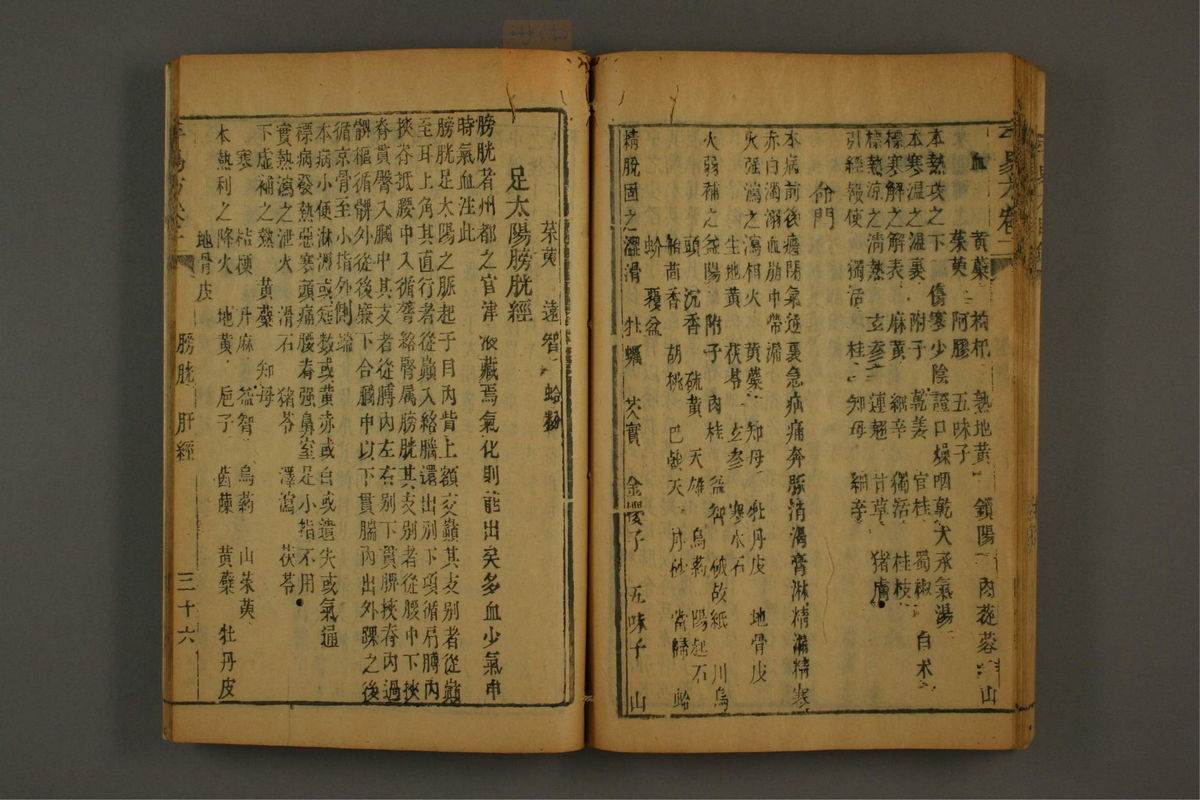 血 黃蘗 枸杞 熟地黃 鎖陽 肉蓯蓉 山
茱萸 阿膠 五味子
本熱攻之 下 傷寒少陰證口燥咽乾大承氣湯
本寒溫之 溫裏 附子 乾姜 官桂 蜀椒 白术
標寒解之 解表 麻黃 細辛 獨活 桂枝
標熱涼之 清熱 玄參 連翹 甘草 猪膚
引經報使 獨活 桂 知母 細辛
命門
本病前後癃閉氣逆裏急疝痛奔豚消渴膏淋精漏精寒
赤白濁溺血崩中帶漏
火强瀉之 瀉相火 黃蘗 知母 牡丹皮 地骨皮
生地黃 茯苓 玄參 寒水石
火弱補之 益陽 附子 肉桂 益智 破故紙 川烏
頭 沉香 硫黃 天雄 烏藥 陽起石
舶茴香 胡桃 巴戟天 丹砂 當歸 蛤
蚧 覆盆
精脫固之 澀滑 牡蠣 芡實 金櫻子 五味子 山
茱萸 遠智 蛤粉
足太陽膀胱經
膀胱者州都之官津液藏焉氣化則能出矣多血少氣申
時氣血注此
膀胱足太陽之脈起于目內眥上額交巔其支別者從巔
至耳上角其直行者從巔入絡腦還出別下項循肩膊內
挾脊抵腰中入循膂絡腎属膀胱其支別者從腰中下挾
脊貫臀入膕中其支者從膊內左右別下貫胂挾脊內過
髀樞循髀外從後廉下合膕中以下貫腨內出外踝之後
循京骨至小指外側端
本病小便淋瀝或短數或黃赤或白或遺失或氣通
標病發熱惡寒頭痛腰脊强鼻窒足小指不用
實熱瀉之 泄火 滑石 猪苓 澤瀉 茯苓
下虛補之 熱 黃蘗 知母
寒 桔梗 升麻 益智 烏藥 山茱萸
本熱利之 降火 地黃 梔子 茵蔯 黃蘗 牡丹皮
地骨皮
膀胱 肝經 三十六